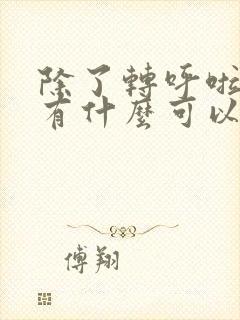 除了轉呼啦
有什麼可以
傅翔